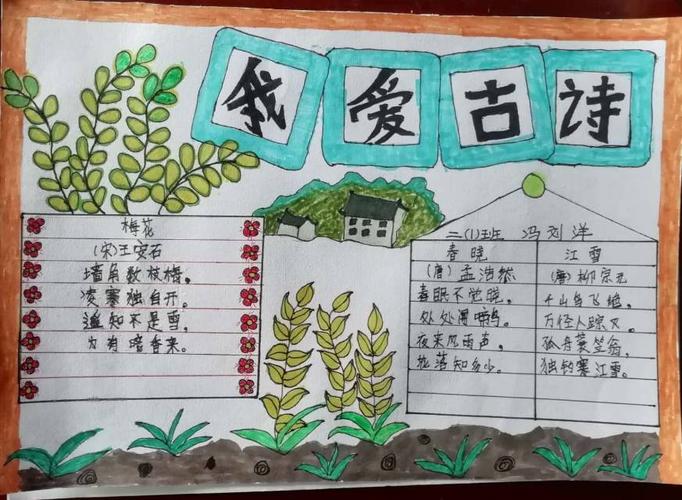 我爱古诗
梅花
(宋)王安石
墙角数枝梅，
凌寒独自开。
遥知不是雪，
为有暗香来。
二(1)班 冯刘洋
春晓
(唐)孟浩然
春眠不觉晓，
处处闻啼鸟。
夜来风雨声，
花落知多少。
江雪
(唐)柳宗元
千山鸟飞绝，
万径人踪
孤舟蓑笠翁，
独钓寒江雪。